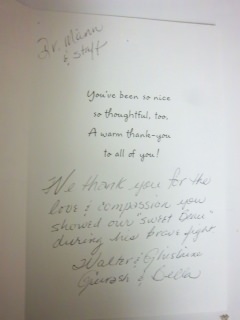 Dr. Mann
& Staff
You've been so nice
so thoughtful, too.
A warm thank-you
to all of you!
We thank you for the
love & compassion you
showed our "sweet Beau"
during his brave fight.
Walter & Ghislaine
& Bella